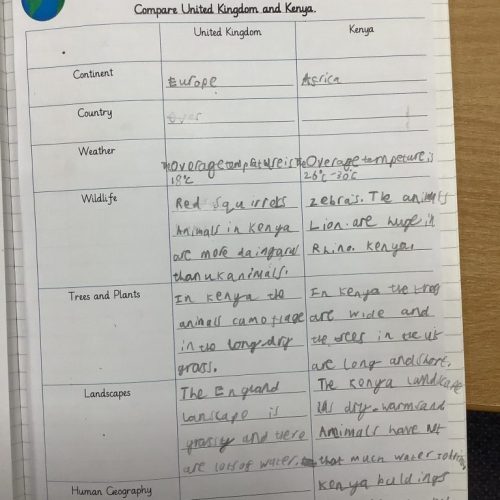 Compare United Kingdom and Kenya.
United Kingdom
Kenya
Continent
Europe
Africa
Country
Weather
The overage tempreture is
18°C
The Overage tempeture is
26°C - 30°C
Wildlife
Red Squirrels
Animals in Kenya
are more daingerus
than uk animals.
Zebras. The animals
Lion. are huge in
Rhino. Kenya.
Trees and Plants
In Kenya the
animals camoflage
in the long dry
grass.
In Kenya the
are wide and
the trees in the uk
are long and short.
Landscapes
The England
lanscape is
grassy and there
are lots of water.
The Kenya landscape
is dry. warm sand
Animals have not
that much water
Human Geography
Kenya buldings